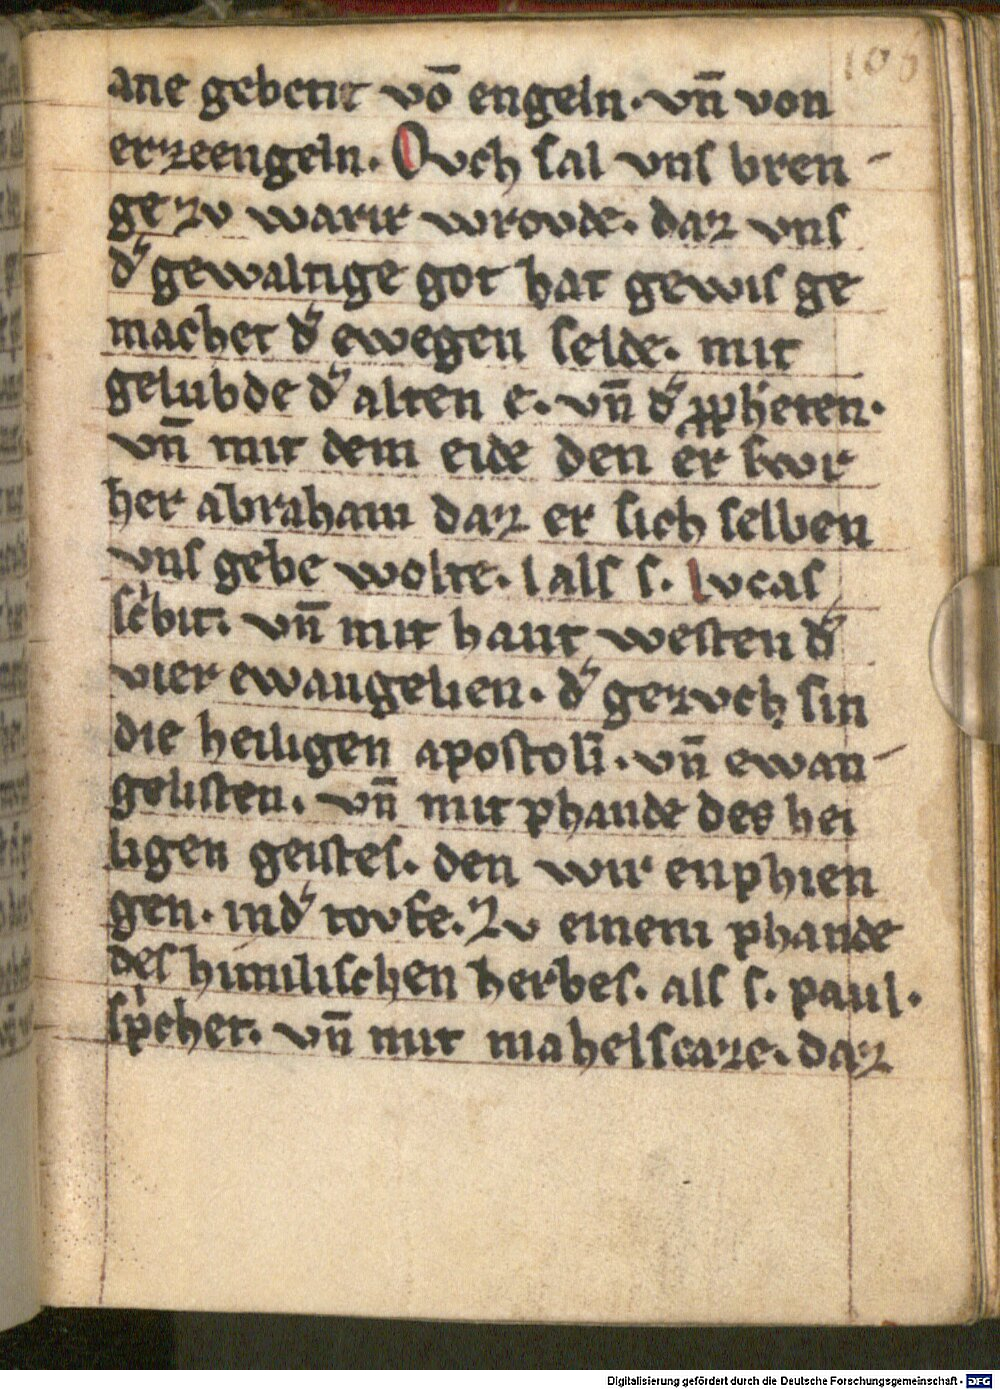 106
ane gebetit vō engeln. vn̄ von
erzeengeln. Ovch sal vns bren-
ge zv warir wrovde. daz vns
d' gewaltige got hat gewis ge
machet d' ewegen selde. mit
gelubde d' alten e. vn̄ d' ꝓpheten.
vn̄ mit dem eide den er swr
her abraham daz er sich selben
vns gebe wolte. l als s. lvcas
sc'bit. vn̄ mit hant westen d'
vier ewangelien. d' gezvch sin
die heiligen apostoli. vn̄ ewan-
gelisten. vn̄ mit phande des hei
ligen geistes. den wir enphien
gen. in d' tovfe. Zv einem phande
des himilischen herbes. als s. paul.
sp'chet. vn̄ mit mahelscaze. daz
Digitalisierung gefördert durch die Deutsche Forschungsgemeinschaft - DFG